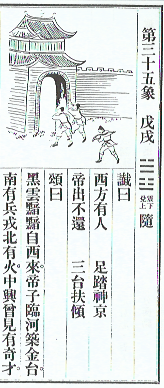 第三十五象 戊戌 ䷐ 震下兌上 隨
讖曰
西方有人 足踏神京
帝出不還 三台扶傾
頌曰
黑雲黯黯自西來。帝子臨河築金台。
南有兵戎北有火。中興曾見有奇才。